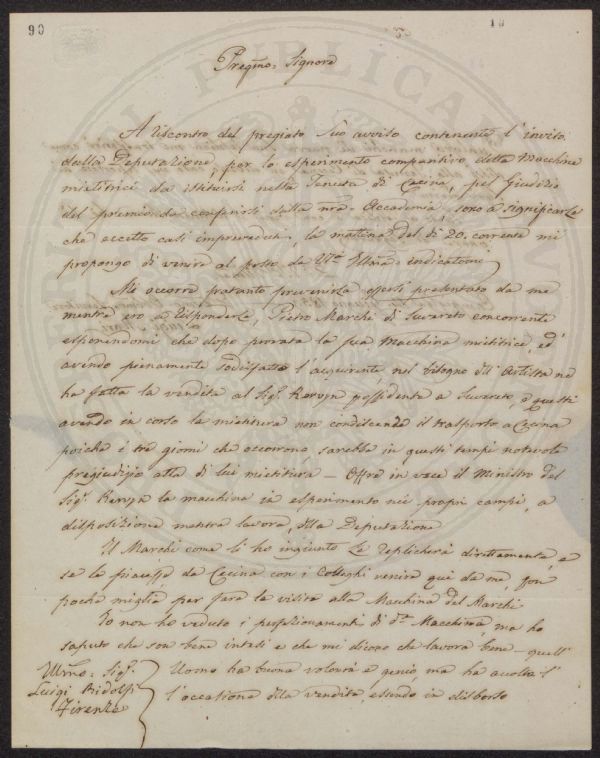 90
10
Pregmo: Signore
A riscontro del pregiato Suo avviso contenente l'invito
della Deputazione, per lo esperimento comparativo delle Macchine
mietitrici da istituirsi nella Tenuta di Cecina, pel Giudizio
del premio da conferirsi dalla nra: Accademia, sono a significarle
che eccetto casi impreveduti, la mattina del dì 20. corrente mi
propongo di venire al posto da V.S. Illma: indicatomi
Mi occorre pertanto prevenirla essersi presentato da me
mentre ero a risponderle, Pietro Marchi di Suvereto concorrente
esponendomi che dopo provata la sua Macchina mietitrice, ed
avendo pienamente sodisfatto l'acquirente nel bisogno dell' Artista ne
ha fatta la vendita al Sigr. possidente a Suvereto, e questi
avendo in corso la mietitura non condiscende il trasporto a Cecina
poichè i tre giorni che occorrono sarebbe in questi tempi notevole
pregiudizio alla di lui mietitura – Offre in vece il Ministro del
Sigr. la macchina in esperimento nei propri campi, a
disposizione mentre lavora, della Deputazione
Il Marchi come li ho ingiunto Le replicherà direttamente, e
se le piacesse da Cecina con i Colleghi venire quà da me, son
poche miglia per fare la visita alla Macchina del Marchi
Io non ho veduto i perfezionamenti di da. Macchina, ma ho
saputo che son bene intesi e che mi dicono che lavora bene – quell'
Uomo ha buona volontà e genio, ma ha avolta l'
l'occasione della vendita, essendo in disborso
Illmo: Sigr.
Luigi Ridolfi
Firenze